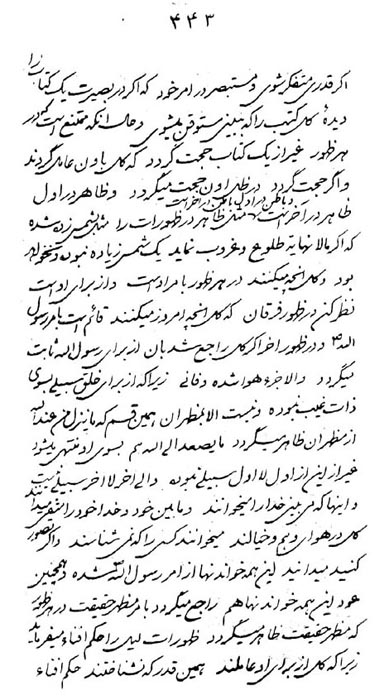 ۴۴۳
اگر قدری متفکر شوی و مستبصر در امر خود که اگر در بصیرت یک کتاب را
دیدهٔ کل کتب را که ببینی مستوقن میشوی و حال آنکه ممتنع است که در
هر ظهور غیر از یک کتاب حجت گردد که کل باون عامل گردند
و اگر حجت گردد در ظل اون حجت میگردد و ظاهر در اول
ظاهر در آخر است ظهورات را مثل شمس زده شده
که اگر مالا نهایه طلوع و غروب نماید یک شمس زیاده نبوده و نخواهد
بود و کل آنچه میکنند در هر ظهور بامر اوست و از برای اوست
نظر کن در ظهور فرقان که کل آنچه امروز میکنند قائم است بامر رسول
الله و در ظهور اخر اگر کل راجع شد بان از برای رسول الله ثابت
میگردد و الا هواء شده و فانی زیرا که از برای خلق سبیلی بسوی
ذات غیب نبوده و نیست الا بمظهران همین قسم که ما ینزل من عند الله
از مظهران ظاهر میگردد ما یصعد الی الله هم بسوی او منتهی میشود
غیر از این از اول لا اول سبیلی نبوده و الی اخر لا اخر سبیلی نیست
و اینها که می بینی خدا را میخوانند و ما بین خود و خدا خود را میدانند
کل در هواء وهم و خیالند میخوانند کسی را که نمی شناسند و اگر تصور
کنید میدانید این همه خواندنها از امر رسول الله شده و همچنین
عود این همه خواندنها هم راجع میگردد بامر مظهر حقیقت در هر ظهور
که مظهر حقیقت ظاهر میگردد ظهورات قبل را حکم افناء میفرماید
زیرا که کل از برای او عاملند همین قدر که نشناختند حکم افناء